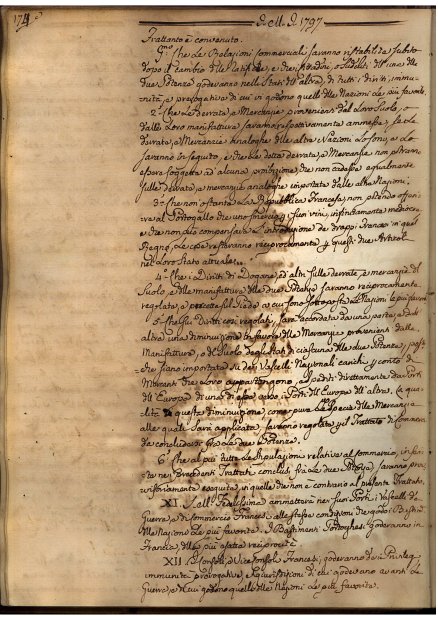 174
D. M. D. 1797
Trattanto è convenuto.
Pmo Che le Relazioni commerciali saranno ristabilite subito
dopo il cambio delle ratifiche, e che i Cittadini, o Sudditi dell'una delle
due Potenze goderanno nelli Stati dell'altra di tutti i diritti, immu-
nità, e prerogative di cui vi godono quelle delle Nazioni le più favorite.
2.° Che le derrate, e Mercanzie provenienti dal loro Suolo, o
dalle loro manifatture saranno rispettivamente ammesse, se le
derrate, e Mercanzie analoghe delle altre Nazioni lo sono, e lo
saranno in seguito, e che le dette derrate, e Mercanzie non potranno
essere soggette ad alcuna proibizione, che non cadesse egualmente
sulle derrate, e mercanzie analoghe importate dalle altre Nazioni.
3.° Che non ostante la Repubblica Francese, non potendo offeri-
re al Portogallo che uno smercio, suoi vini, infinitamente mediocre,
e che non può compensare l'introduzione de' drappi Francesi in quel
Regno, le cose resteranno reciprocamente questi due Articoli
nel loro stato attuale.
4.° Che i Diritti di Dogane, ed altri sulle derrate, e mercanzie del
Suolo, e delle manifatture delle due Potenze saranno reciprocamente
regolate, e percette sul Piede a cui sono sottoposte le Nazioni le più favorite.
5.° Che sui Diritti così regolati, sarà accordata da una parte, e dall'
altra una diminuzione in favore delle Mercanzie provenienti dalle
Manifatture, o del Suolo degli Stati di ciascuna delle due Potenze, purchè
che siano importate su dei Vascelli Nazionali carichi per conto di
Mercanti che loro appartengono, e spediti direttamente dai Porti
d'Europa di una di esse verso i Porti d'Europa dell'altra. La qua-
lità di questa diminuzione, come pure le specie delle Mercanzie
alle quali sarà applicata, saranno regolate per il Trattato di Commercio
da concludersi fra le due Potenze.
6.° Che al più tutte le Stipulazioni relative al commercio, inser-
ite nei Precedenti Trattati, conclusi fra le due Potenze, saranno pro-
visoriamente eseguite in quelle che non è contrario al presente Trattato.
XI. S. M. Fedelissima ammetterà nei suoi Porti i Vascelli da
Guerra, e di Commercio Francesi alle stesse condizioni che godono i Bastim.ti
delle Nazioni le più favorite. I Bastimenti Portoghesi goderanno in
Francia della più esatta reciprocità.
XII. I Consoli, e Viceconsoli Francesi, goderanno dei Privilegi,
immunità, prerogative, e giurisdizioni di cui godevano avanti la
Guerra, e di cui godono quelli delle Nazioni le più favorite.